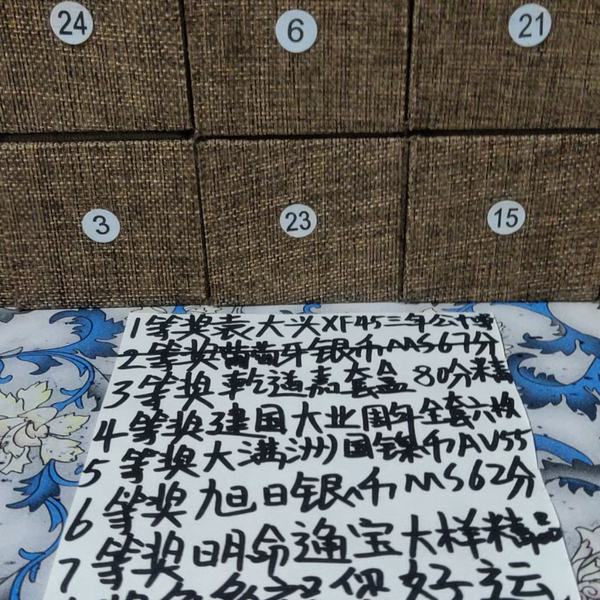 24 6 21
3 23 15
1等奖袁大头XF45三年公博
2等奖葡萄牙银币MS67分
3等奖乾道嘉套盒80分精
4等奖建国大业周年全套六枚
5等奖大满洲国镍币AU55
6等奖旭日银币MS62分
7等奖明命通宝大样精品
祝好运